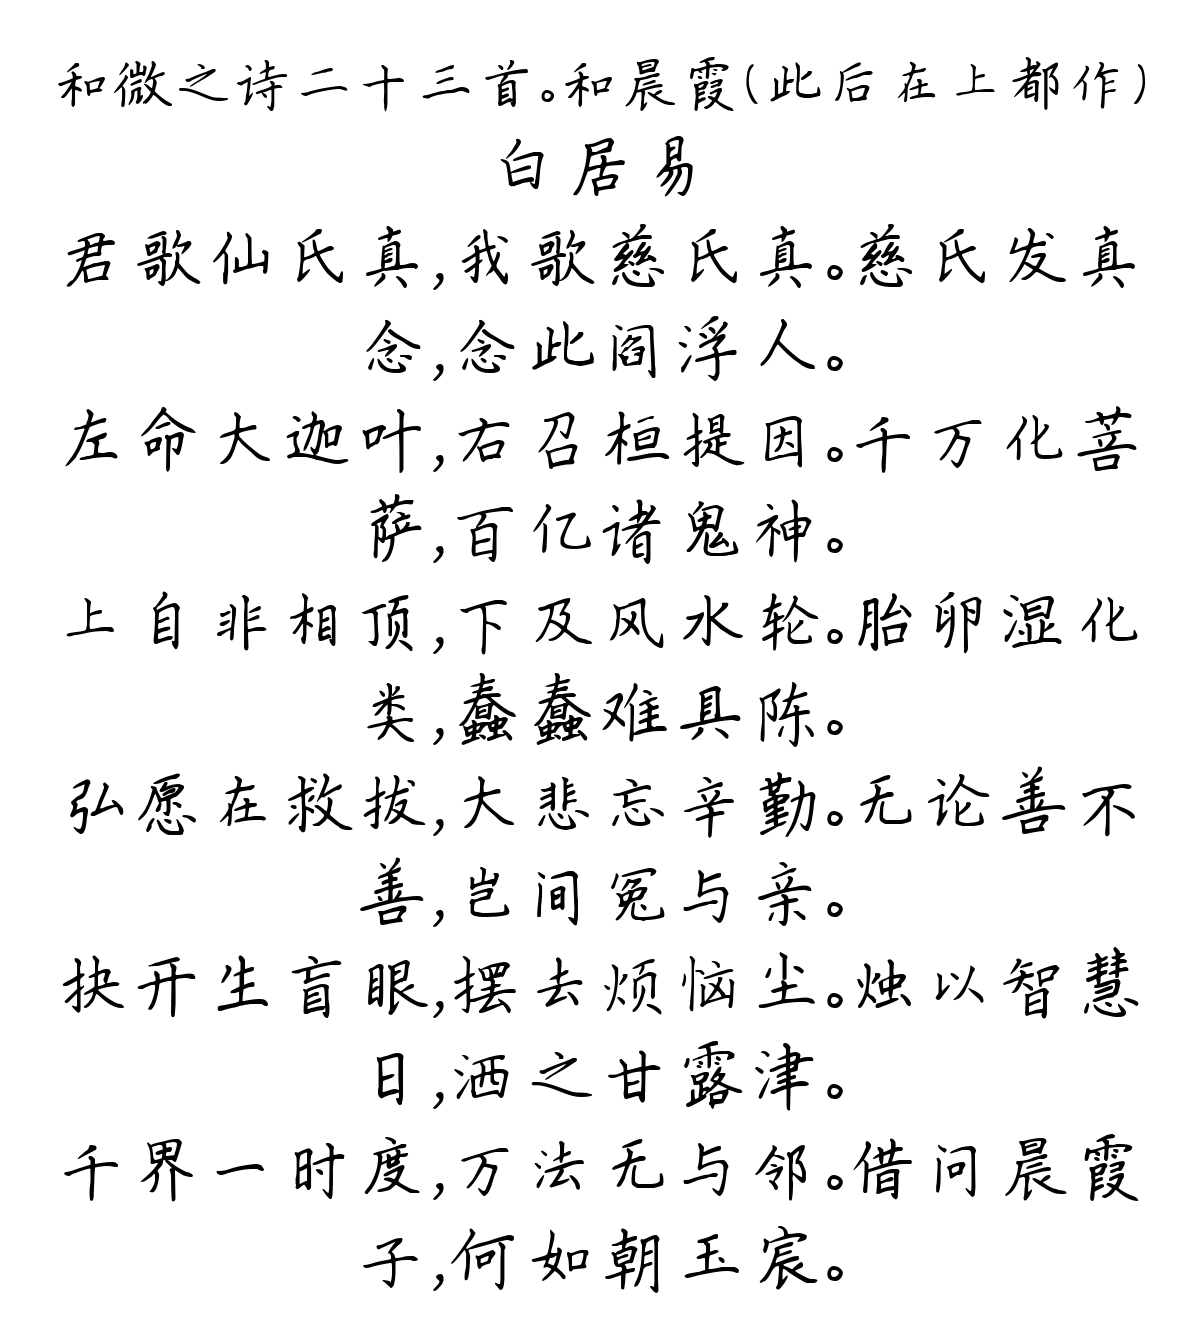 和微之诗二十三首。和晨霞(此后在上都作)
白居易
君歌仙氏真,我歌慈氏真。慈氏发真
念,念此阎浮人。
左命大迦叶,右召桓提因。千万化菩
萨,百亿诸鬼神。
上自非相顶,下及风水轮。胎卵湿化
类,蠢蠢难具陈。
弘愿在救拔,大悲忘辛勤。无论善不
善,岂间冤与亲。
抉开生盲眼,摆去烦恼尘。烛以智慧
日,洒之甘露津。
千界一时度,万法无与邻。借问晨霞
子,何如朝玉宸。